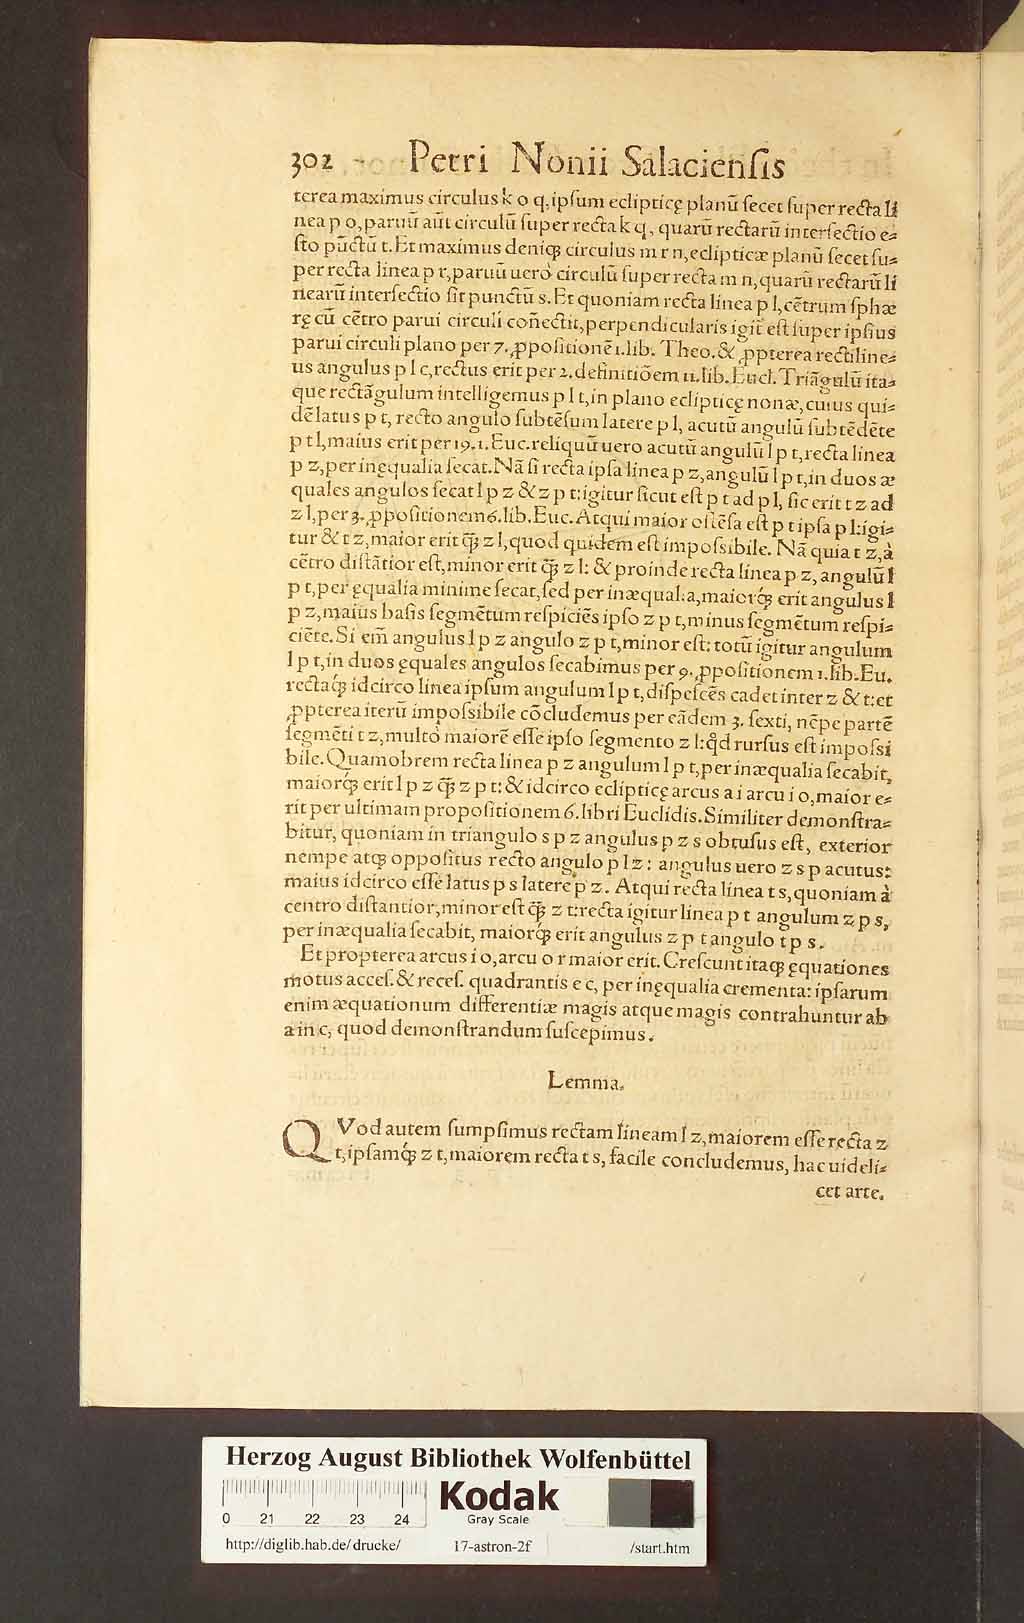 302 Petri Nonii Salaciensis
terea maximus circulus k o q, ipsum eclipticę planū secet super recta li
nea p o, paruū aūt circulū super recta k q, quarū rectarū intersectio e⸗
sto pūctū t. Et maximus deniqꝫ circulus m r n, eclipticæ planū secet su⸗
per recta linea p r, paruū uero circulū super recta m n, quarū rectarū li
nearū intersectio sit punctū s. Et quoniam recta linea p l, cētrum sphæ
rę cū cētro parui circuli coñectit, perpendicularis igit̄ est super ipsius
parui circuli plano per 7. ꝓpositionē 1. lib. Theo. & ꝓpterea rectiline⸗
us angulus p l c, rectus erit per 2. definitiōem 11. lib. Eucl. Triāgulū ita⸗
que rectāgulum intelligemus p l t, in plano eclipticę nonæ, cuius qui⸗
dē latus p t, recto angulo subtēsum latere p l, acutū angulū subtēdēte
p t l, maius erit per 19. 1. Euc. reliquū uero acutū angulū l p t, recta linea
p z, per inęqualia secat. Nā si recta ipsa linea p z, angulū l p t, in duos æ
quales angulos secat l p z & z p t: igitur sicut est p t ad p l, sic erit t z ad
z l, per 3. ꝓpositionem 6. lib. Euc. Atqui maior ostēsa est p t ipsa p l: igi⸗
tur & t z, maior erit q̄ꝫ z l, quod quidem est impossibile. Nā quia t z, à
cētro distātior est, minor erit q̄ꝫ z l: & proinde recta linea p z, angulū l
p t, per ęqualia minime secat, sed per inæqualia, maiorqꝫ erit angulus l
p z, maius basis segmētum respiciēs ipso z p t, minus segmētum respi⸗
ciēte. Si em̄ angulus l p z angulo z p t, minor est: totū igitur angulum
l p t, in duos ęquales angulos secabimus per 9. ꝓpositionem 1. lib. Eu.
rectaqꝫ idcirco linea ipsum angulum l p t, dispescēs cadet inter z & t: et
ꝓpterea iterū impossibile cōcludemus per eādem 3. sexti, nēpe partē
segmēti t z, multò maiorē esse ipso segmento z l: qd̄ rursus est impossi
bile. Quamobrem recta linea p z angulum l p t, per inæqualia secabit,
maiorqꝫ erit l p z q̄ꝫ z p t: & idcirco eclipticę arcus a i arcu i o, maior e⸗
rit per ultimam propositionem 6. libri Euclidis. Similiter demonstra⸗
bitur, quoniam in triangulo s p z angulus p z s obtusus est, exterior
nempe atqꝫ oppositus recto angulo p l z: angulus uero z s p acutus:
maius idcirco esse latus p s latere p z. Atqui recta linea t s, quoniam à
centro distantior, minor est q̄ꝫ z t: recta igitur linea p t angulum z p s,
per inæqualia secabit, maiorqꝫ erit angulus z p t angulo t p s.
Et propterea arcus i o, arcu o r maior erit. Crescunt itaqꝫ ęquationes
motus acces. & reces. quadrantis e c, per inęqualia crementa: ipsarum
enim æquationum differentiæ magis atque magis contrahuntur ab
a in c, quod demonstrandum suscepimus.
Lemma.
QVod autem sumpsimus rectam lineam l z, maiorem esse recta z
t, ipsamqꝫ z t, maiorem recta t s, facile concludemus, hac uideli⸗
cet arte.
Herzog August Bibliothek Wolfenbüttel
0 21 22 23 24
Kodak
Gray Scale
http://diglib.hab.de/drucke/ 17-astron-2f /start.htm